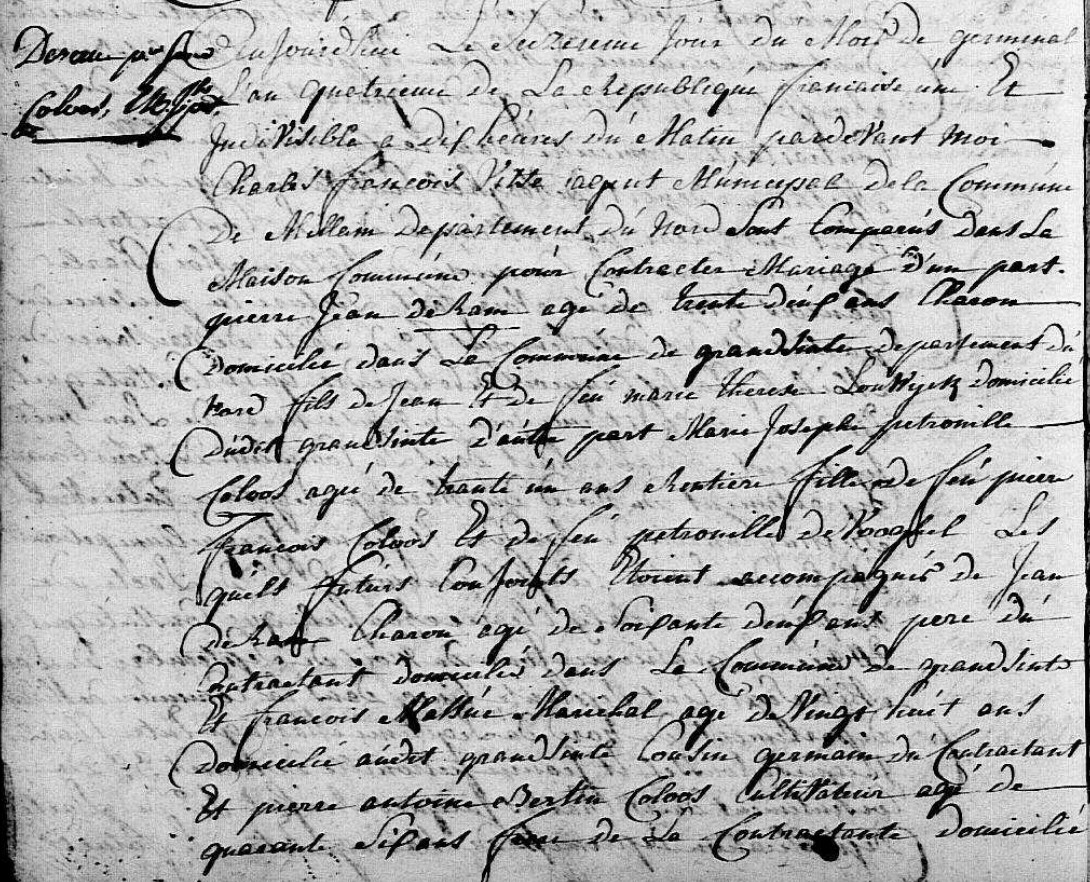 Deram pr jean
Coloos, M. Jph pet.
Cejourdhui Le Seizeieme Jour du Mois de germinal
L'an quatrieme de La Republique francaise une Et
Indivisible a dix heures du Matin pardevant moi
Charles francois Vitse agent Municipal de la Commune
De Millam departement du Nord Sont Comparus dans La
Maison Commune pour Contracter Mariage d'un part.
pierre Jean de Ram agé de trente deux ans Charon
Domicilié dans La Commune de grandsinte departement du
nord fils de Jean Et de feu marie therese Louwyck domicilié
dudit grandsinte d'autre part Marie Josephe petronille
Coloos agée de trante un ans Rentiere fille de feu pierre
francois Coloos Et de feu petronille de Vooghel Les
quels futurs Conjoints Etoient accompagnés de Jean
de Ram Charon agé de Soixante deux ans pere du
Contractant domicilié dans La Commune de grandsinte
Et francois Marichal agé de Vingt huit ans
Domicilié audit grandsinte Cousin germain du Contractant
Et pierre antoine Bertin Coloos Cultivateur agé de
quarante Six ans frere de La Contractante domicilié